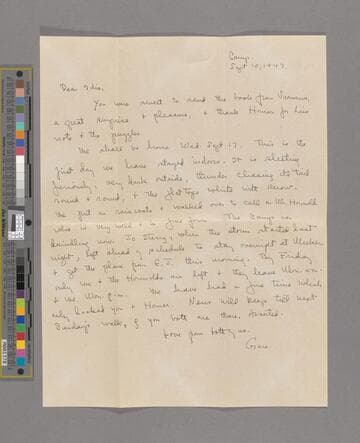 Camp,
Sept 10, 1947
Dear Idis,
You were sweet to send the book from Vermont,
a great surprise & pleasure, & thank Homer for his
note & the puzzle.
We shall be home Wed. Sept 17. This is the
first day we have stayed indoors. It is sleeting
furiously, very dark outside, thunder chasing its tail
round & round, & the flat tops white with snow.
We put on raincoats & walked over to call on
who is very well & in fine form. The Camp is
dwindling now. So Story, when the storm started last
night, left ahead of schedule to stay overnight at
& get the plane from this morning. By Friday
only we & the are left & they leave
& we p.m. We have had a fine time which
only lacked you & Homer. News will keep till next
Sunday's walk, if you both are there.
Love from both of us.